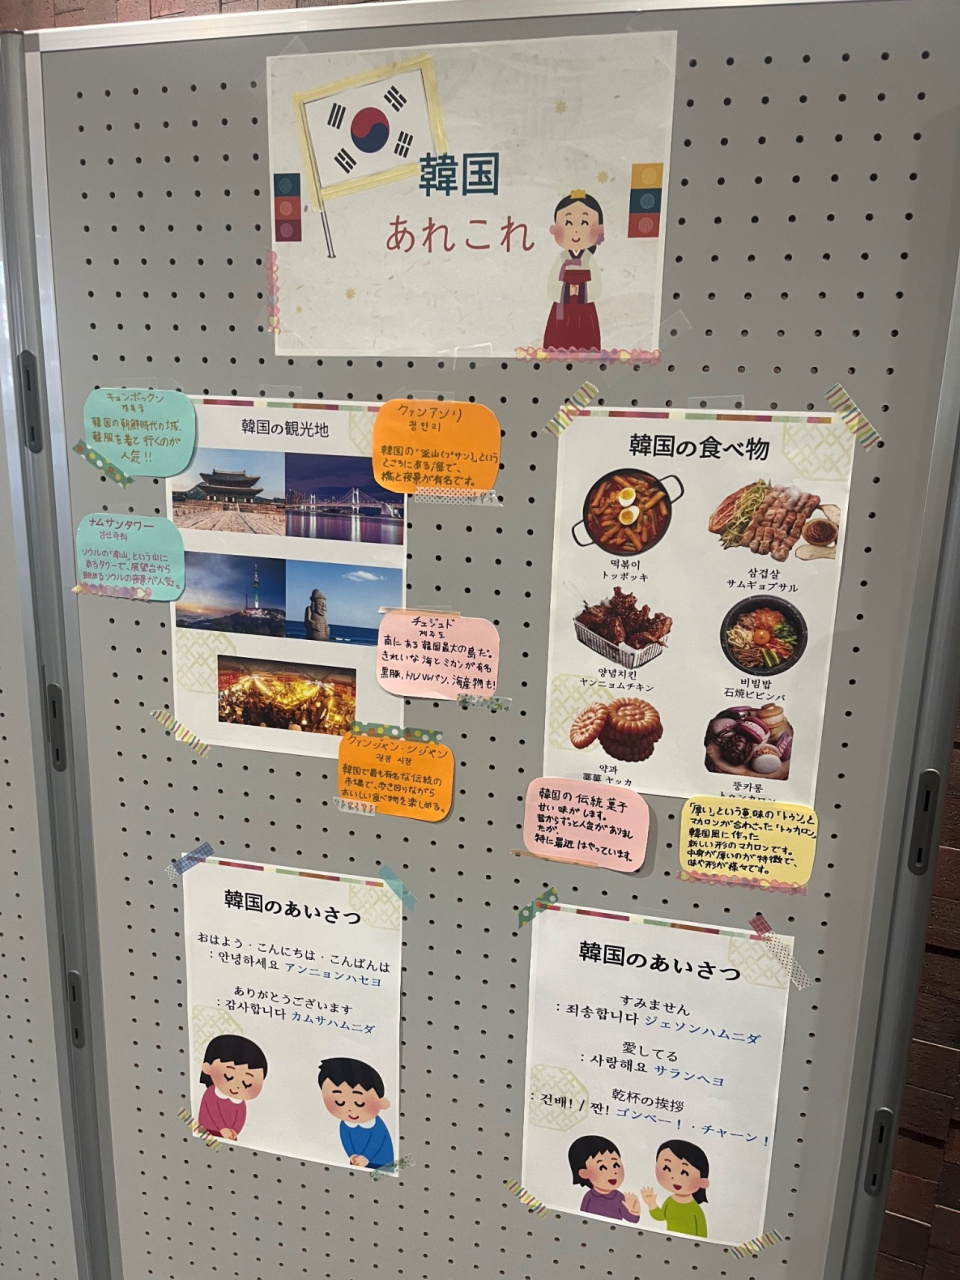 韓国
あれこれ
キョンボックン
경복궁
韓国の朝鮮時代の城、
韓服を着て行くのが
人気!!
韓国の観光地
クァンアンリ
광안리
韓国の「釜山(プサン)」という
ところにある海で、
橋と夜景が有名です。
ナムサンタワー
남산타워
ソウルの「南山」という山に
あるタワーで、展望台から
眺めるソウルの夜景が人気。
チェジュド
제주도
南にある韓国最大の島だ。
きれいな海とミカンが有名
黒豚、トルハルバン、海産物も!
クァンジャン・シジャン
광장 시장
韓国で最も有名な伝統の
市場で、歩き回りながら
おいしい食べ物を楽しめる。
韓国の食べ物
떡볶이
トッポッキ
삼겹살
サムギョプサル
양념치킨
ヤンニョムチキン
비빔밥
石焼ビビンバ
약과
薬菓 ヤッカ
뚱카롱
トゥンカロン
韓国の伝統菓子
甘い味がします。
昔からずっと人気がありまし
たが、
特に最近はやっています。
「厚い」という意味の「トゥン」と
マカロンが合わさった「トゥカロン」
韓国風に作った
新しい形のマカロンです。
中身が厚いのが特徴で、
味や形が様々です。
韓国のあいさつ
おはよう・こんにちは・こんばんは
: 안녕하세요 アンニョンハセヨ
ありがとうございます
: 감사합니다 カムサハムニダ
韓国のあいさつ
すみません
: 죄송합니다 ジェソンハムニダ
愛してる
: 사랑해요 サランヘヨ
乾杯の挨拶
: 건배! / 짠! ゴンベー!・チャーン!